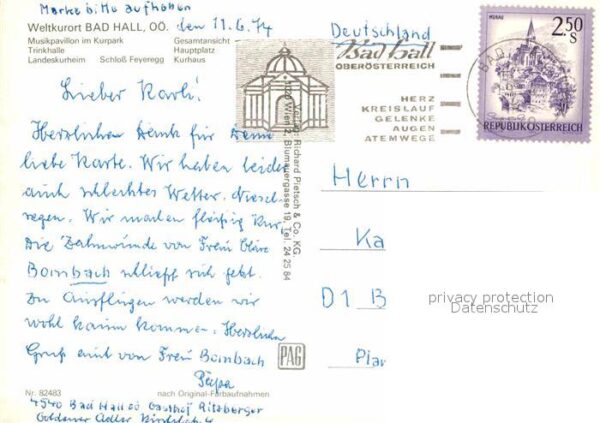 Marke bitte aufheben
Weltkurort BAD HALL, OÖ. den 11.6.74
Musikpavillon im Kurpark Gesamtansicht
Trinkhalle Hauptplatz
Landeskurheim Schloß Feyeregg Kurhaus
Lieber Karli!
Herzlichen Dank für Deine
liebe Karte. Wir haben leider
auch schlechtes Wetter, Niesel-
regen. Wir machen fleißig Kur.
Die Zahnwunde von Frau
Bombach schließt sich jetzt.
Zu Ausflügen werden wir
wohl kaum kommen. Herzlichen
Gruß auch von Frau Bombach
Papa
Nr. 82483 nach Original-Farbaufnahmen
4540 Bad Hall OÖ Gasthof Ritzberger
Goldener Adler
Verlag: Richard Pietsch & Co. KG.
1020 Wien 2, Blumauergasse 19, Tel. 24 25 84
PAG
Deutschland
Bad Hall
OBERÖSTERREICH
HERZ
KREISLAUF
GELENKE
AUGEN
ATEMWEGE
MURAU
2.50
S
REPUBLIK ÖSTERREICH
BAD
Herrn
Ka
D 1 B
privacy protection
Datenschutz